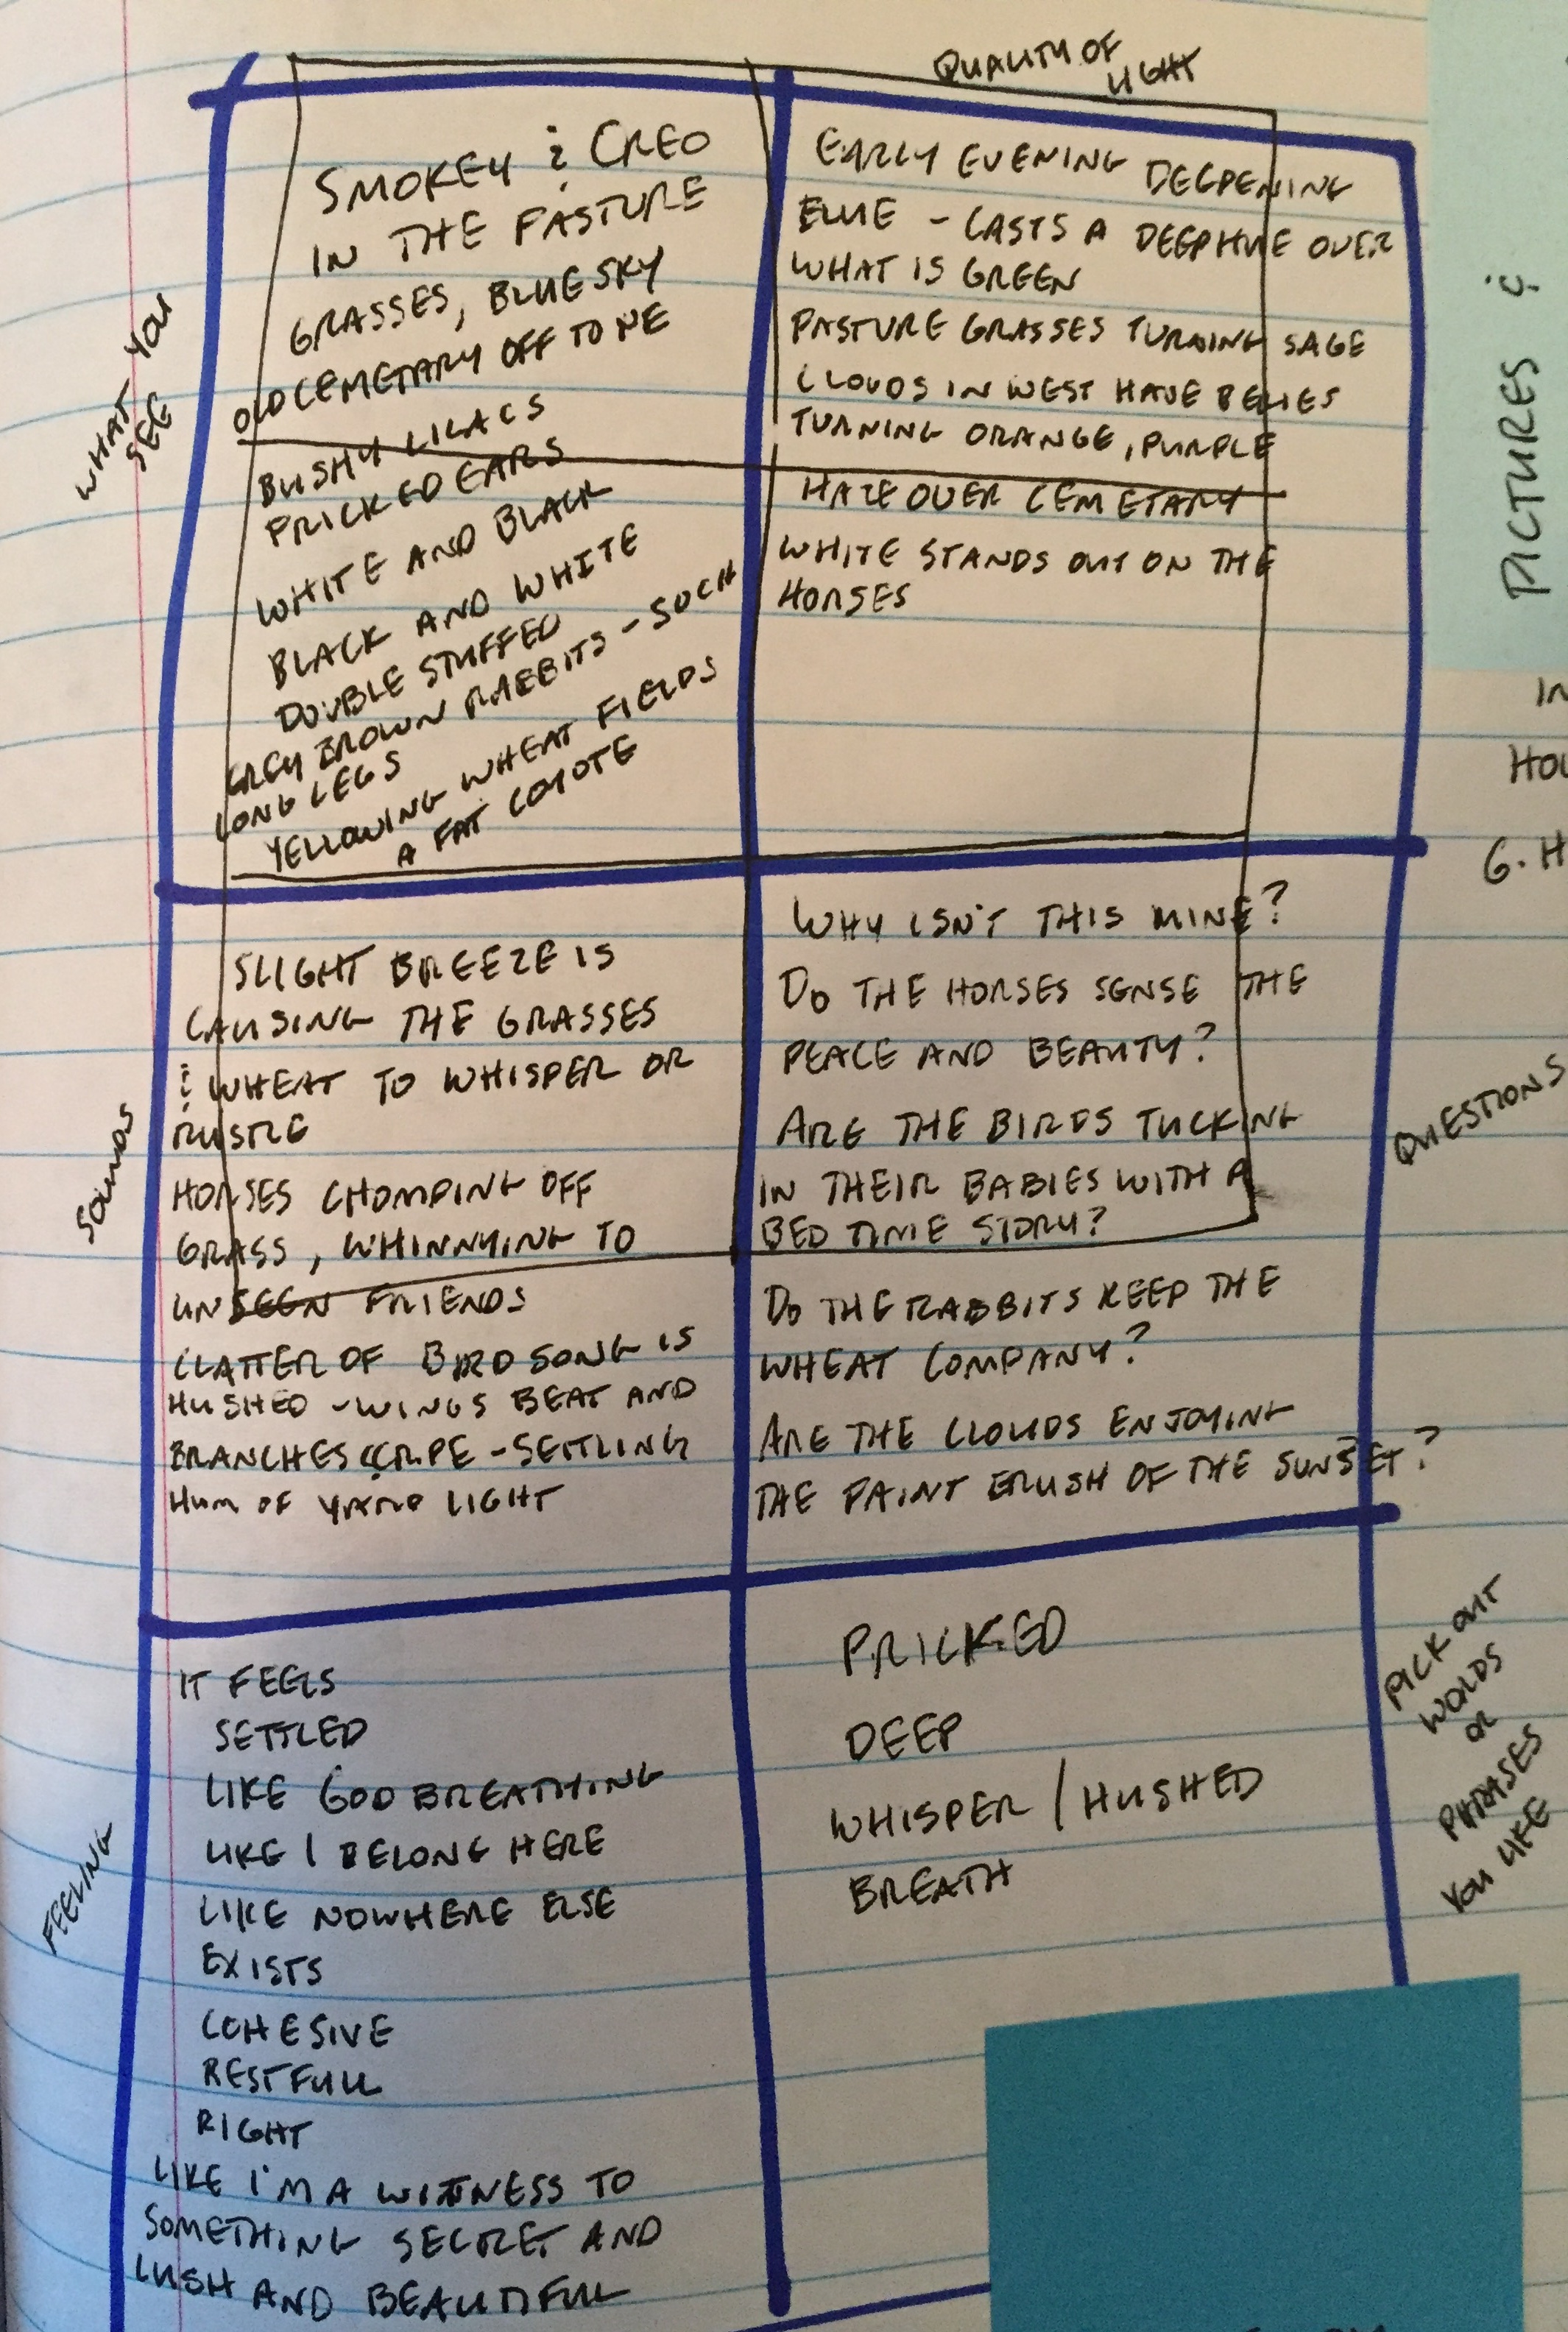 QUALITY OF
LIGHT
WHAT YOU
SEE
SMOKEY & CREO
IN THE PASTURE
GRASSES, BLUE SKY
OLD CEMETARY OFF TO NE
BUSHY LILACS
PRICKED EARS
WHITE AND BLACK
BLACK AND WHITE
DOUBLE STUFFED
GREY BROWN RABBITS - SUCH
LONG LEGS
YELLOWING WHEAT FIELDS
A FAT COYOTE
EARLY EVENING DEEPENING
BLUE - CASTS A DEEP HUE OVER
WHAT IS GREEN
PASTURE GRASSES TURNING SAGE
CLOUDS IN WEST HAVE BELIES
TURNING ORANGE, PURPLE
HAZE OVER CEMETARY
WHITE STANDS OUT ON THE
HORSES
SOUNDS
SLIGHT BREEZE IS
CAUSING THE GRASSES
& WHEAT TO WHISPER OR
RUSTLE
HORSES CHOMPING OFF
GRASS, WHINNYING TO
UNSEEN FRIENDS
CLATTER OF BIRD SONG IS
HUSHED - WINGS BEAT AND
BRANCHES SCRAPE - SETTLING
HUM OF YARD LIGHT
QUESTIONS
WHY ISN'T THIS MINE?
DO THE HORSES SENSE THE
PEACE AND BEAUTY?
ARE THE BIRDS TUCKING
IN THEIR BABIES WITH A
BED TIME STORY?
DO THE RABBITS KEEP THE
WHEAT COMPANY?
ARE THE CLOUDS ENJOYING
THE PAINT BRUSH OF THE SUNSET?
FEELING
IT FEELS
SETTLED
LIKE GOD BREATHING
LIKE I BELONG HERE
LIKE NOWHERE ELSE
EXISTS
COHESIVE
RESTFULL
RIGHT
LIKE I'M A WITNESS TO
SOMETHING SECRET AND
LUSH AND BEAUTIFUL
PICK OUT
WORDS
OR
PHRASES
YOU LIKE
PRICKED
DEEP
WHISPER / HUSHED
BREATH
PICTURES &
IN
HOU
6. H